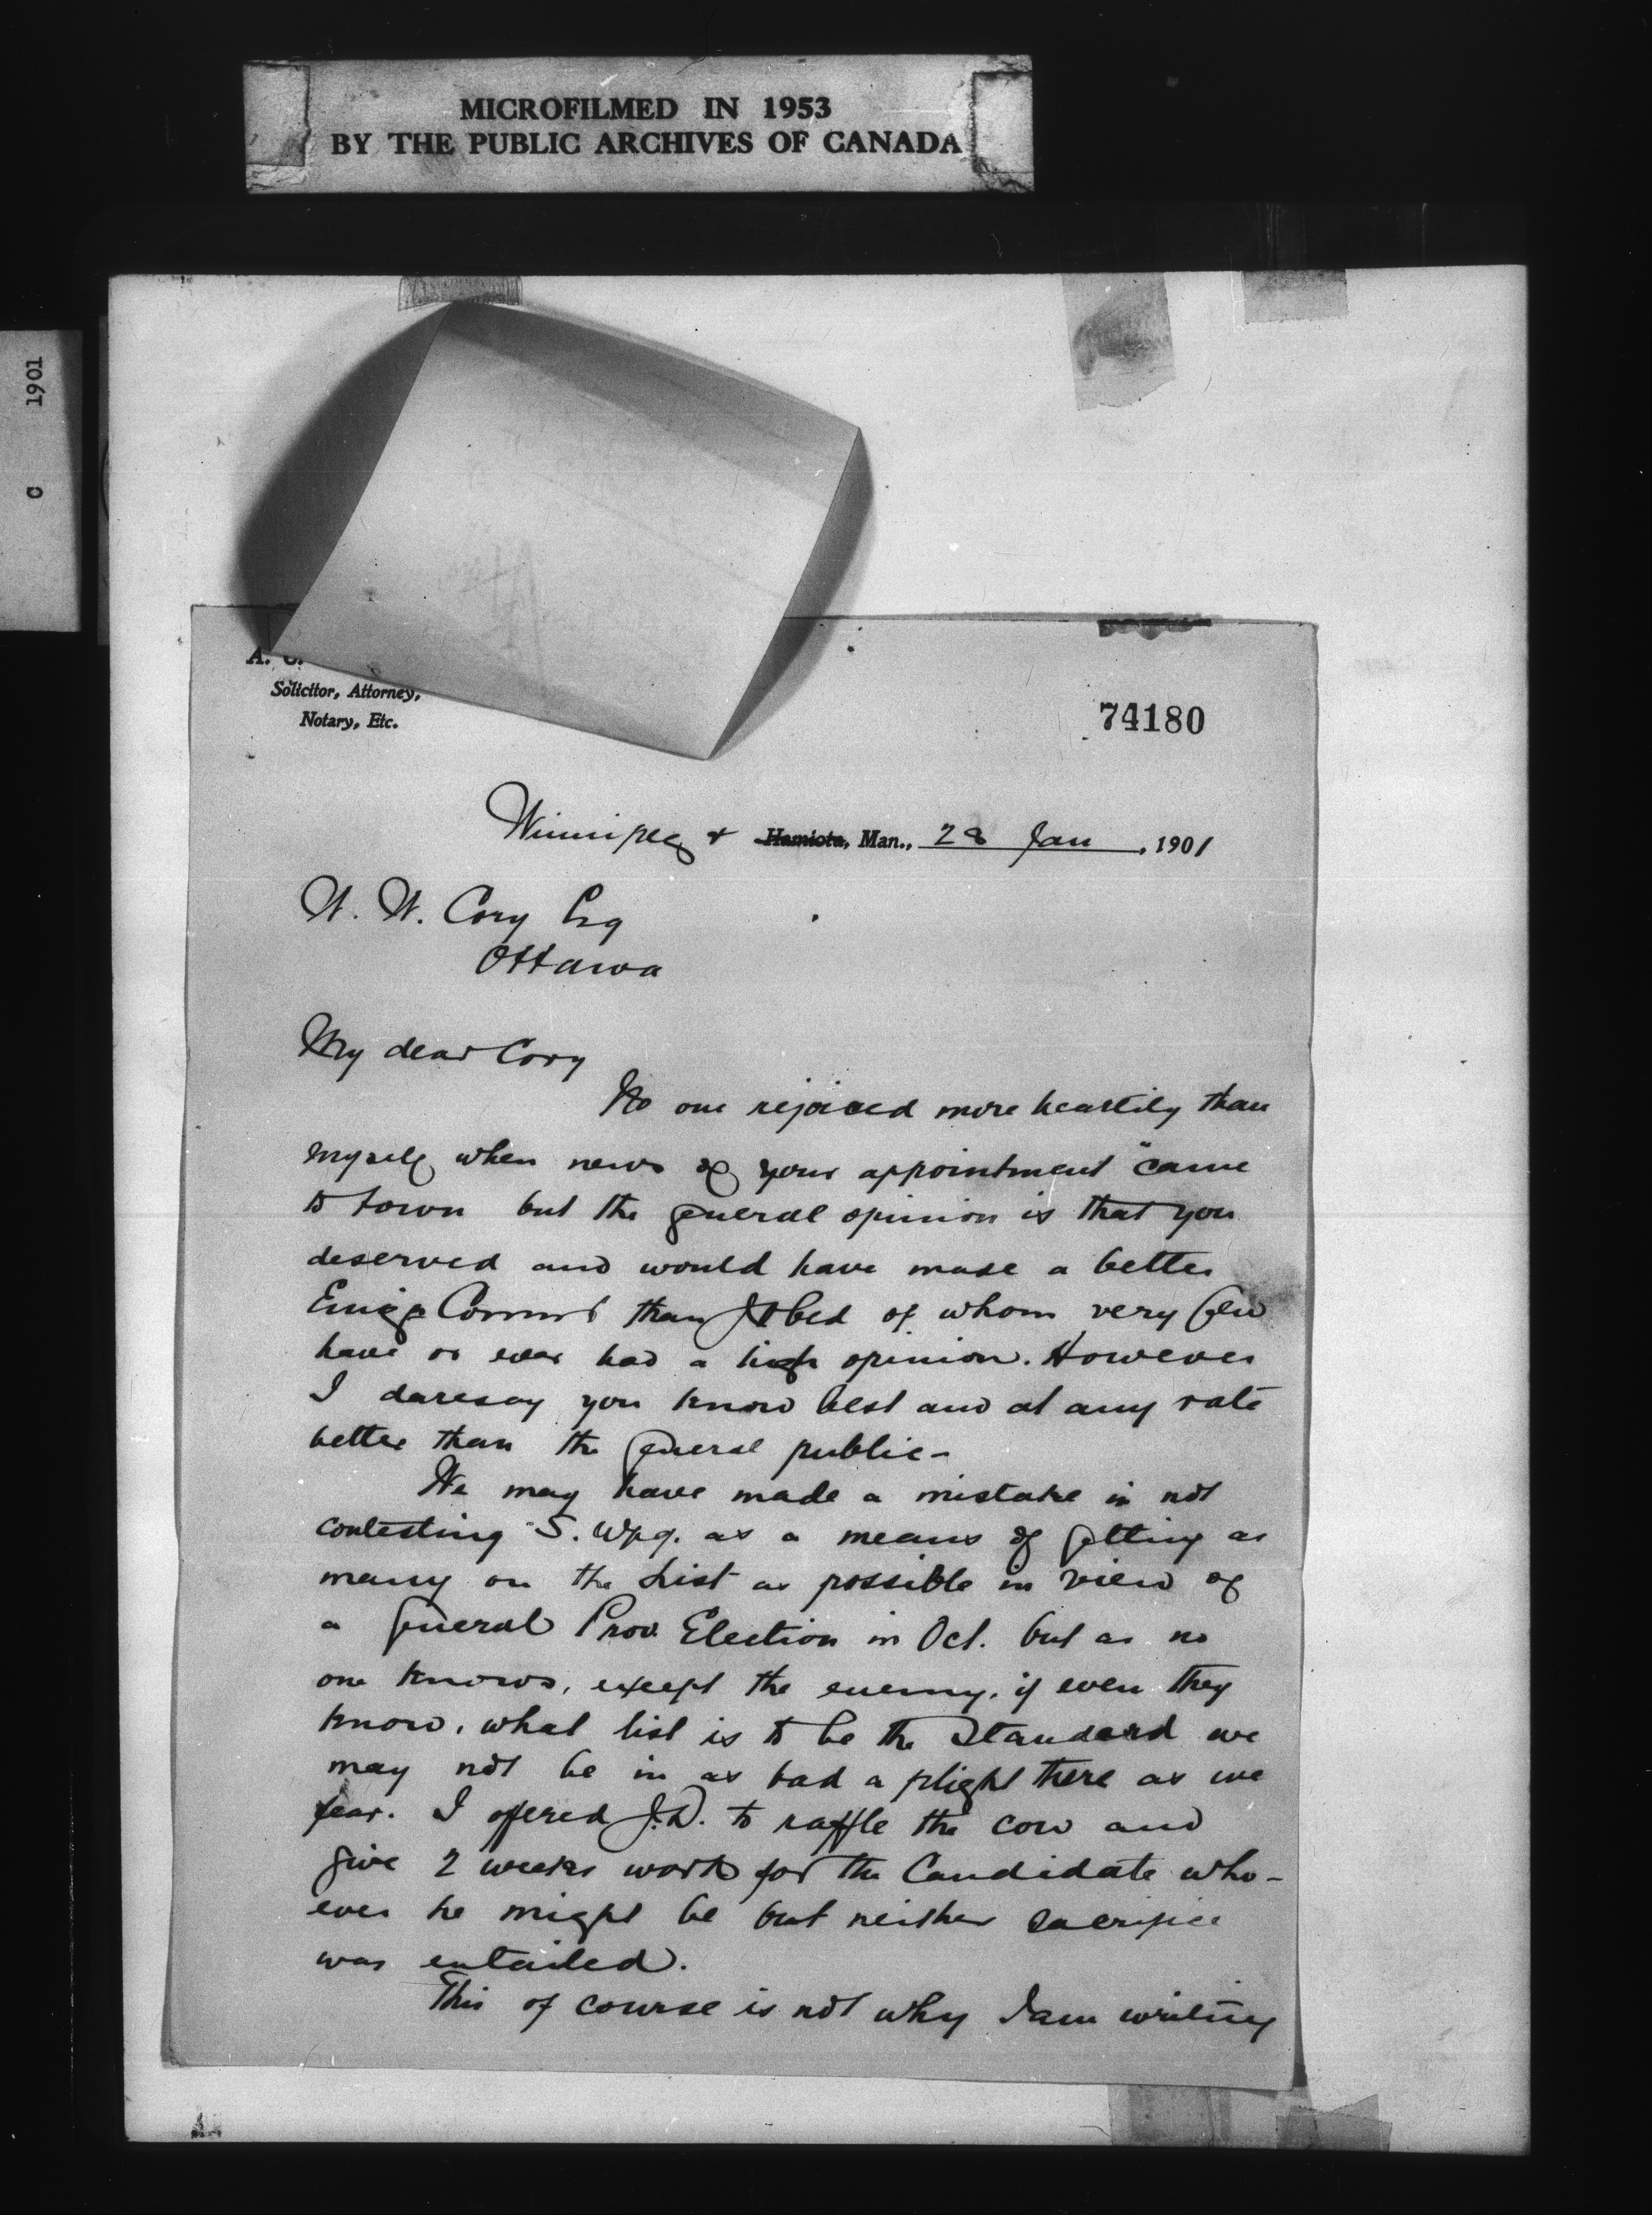 MICROFILMED IN 1953
BY THE PUBLIC ARCHIVES OF CANADA
C 1901
A. C.
Solicitor, Attorney,
Notary, Etc.
74180
Winnipeg & Hamiota, Man., 28 Jan, 1901
W. W. Cory Esq
Ottawa
My dear Cory
No one rejoiced more heartily than
myself when news of your appointment came
to town but the general opinion is that you
deserved and would have made a better
Emigr Commr than of whom very few
have or ever had a high opinion. However
I daresay you know best and at any rate
better than the general public -
We may have made a mistake in not
contesting S. Wpg. as a means of getting as
many on the List as possible in view of
a general Prov. Election in Oct. but as no
one knows, except the enemy, if even they
know, what list is to be the Standard we
may not be in as bad a plight there as we
fear. I offered J.D. to raffle the cow and
give 2 weeks work for the Candidate who-
ever he might be but neither sacrifice
was entailed.
This of course is not why I am writing